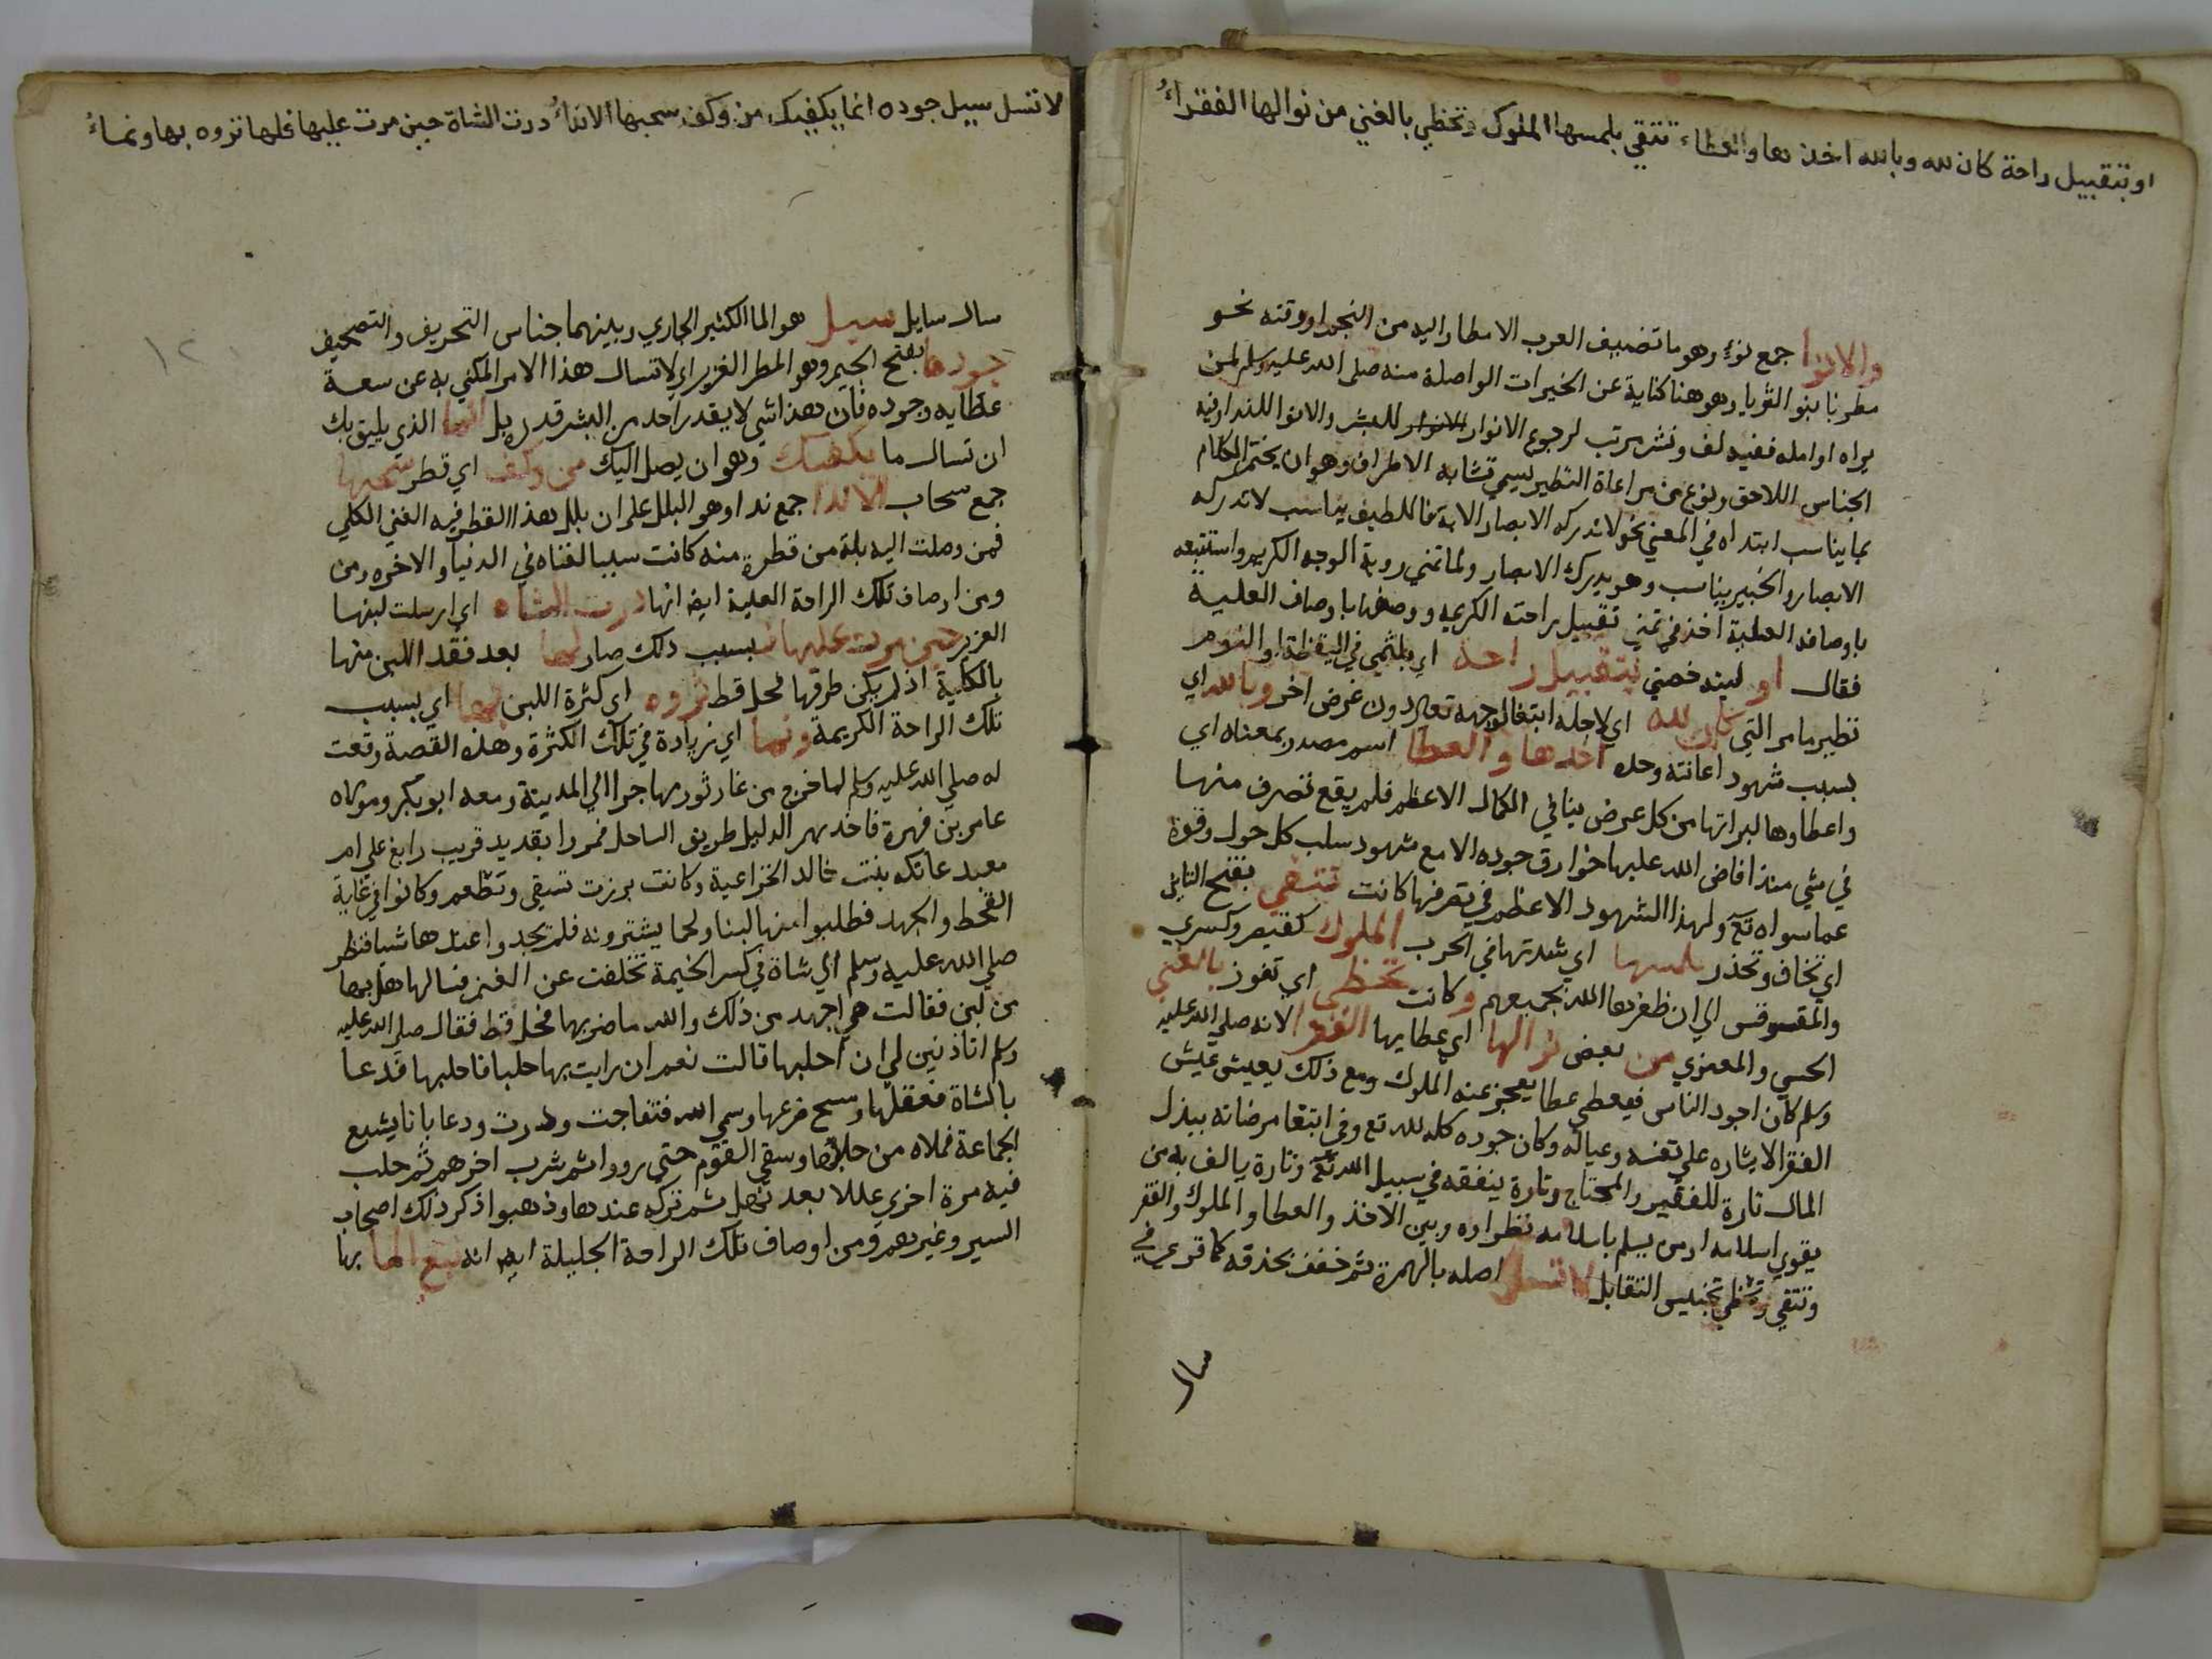 او بتقبيل راحة كان لله وبالله اخذها والعطاء تتقي بلمسها الملوك وتحظي بالغني من نوالها الفقراءُ
والانوا جمع نوء وهو ما تضيف العرب الامطار اليه من النجم او وقته نحو
مطرنا بنو الثريا وهو هنا كناية عن الخيرات الواصلة منه صلي الله عليه وسلم لمن
يراه او امله ففيه لف ونشر مرتب لرجوع الانوار للبشر والانوا للندا وفيه
الجناس اللاحق ونوع من مراعاة النظير يسمي تشابه الاطراف وهو ان يختم الكلام
بما يناسب ابتداه في المعني نحو لا تدركه الابصار الاية فاللطيف يناسب لا تدركه
الابصار والخبير يناسب وهو يدرك الابصار ولما تمني روية الوجه الكريم واستتبعه
باوصافه العلية اخذ في تمني تقبيل راحته الكريمه ووصفها باوصاف العلية
فقال او ليته خصني بتقبيل راحة اي بلثمي في اليقظة او النوم
نظير ما مر التي كان لله اي لاجله ابتغا لوجهه تعالي دون غرض اخر وبالله اي
بسبب شهود اعانته وحده اخذها والعطا اسم مصدر بمعناه اي
واعطاوها لبراتها من كل عرض ينافي الكمال الاعظم فلم يقع تصرف منها
في شي منذ افاض الله عليها خوارق جوده الا مع شهود سلب كل حول وقوة
عما سواه تع ولهذا الشهود الاعظم في تصرفها كانت تتقي بفتح التاين
اي تخاف وتحذر بلمسها اي شدتها في الحرب الملوك كقيصر وكسري
والمقسوقس الي ان ظفرها الله بجميعهم وكانت تحظي اي تفوز بالغني
الحسي والمعنوي من بعض نوالها اي عطايها الفقرا لانه صلي الله عليه
وسلم كان اجود الناس فيعطي عطا يعجز عنه الملوك ومع ذلك يعيش عيش
الفقرا لايثاره علي نفسه وعياله وكان جوده كله لله تع وفي ابتغا مرضاته يبذل
المال تارة للفقير والمحتاج وتارة ينفقه في سبيل الله تع وتارة يالف به من
يقوي اسلامه او من يسلم باسلامه نظراوه وبين الاخذ والعطا والملوك والفقر
وتتقي وتحظي تجنيس التقابل لا تسل اصله بالهمزة ثم خفف بحذفه كما قري في
سال
لا تسل سيل جوده انما يكفيك من وكف سحبها الانداءُ درت الشاة حين مرت عليها فلها ثروه بها ونماءُ
١٢
سال سايل سيل هو الما الكثير الجاري وبينهما جناس التحريف والتصحيف
جودها بفتح الجيم وهو المطر الغزير اي لا تسال هذا الامر المكني به عن سعة
عطايه وجوده فان هذا شي لا يقدر احد من البشر قدره بل انما الذي يليق بك
ان تسال ما يكفيك وهو ان يصل اليك من وكف اي قطر سحبها
جمع سحاب الاندا جمع ندا وهو البلل علي ان بلل هذا القطر فيه الغني الكلي
فمن وصلت اليه بلة من قطرة منه كانت سببا لغناه في الدنيا والاخره ومن
ومن اوصاف تلك الراحة العلية ايضا انها درت الشاه اي ارسلت لبنها
الغزير حين مرت عليها فبسبب ذلك صار لها بعد فقد اللبن منها
بالكلية اذ لم يكن طرقها فحل قط ثروه اي كثرة اللبن بها اي بسبب
تلك الراحة الكريمة ونما اي زيادة في تلك الكثرة وهذه القصة وقعت
له صلي الله عليه وسلم لما خرج من غار ثور مهاجرا الي المدينة ومعه ابو بكر ومولاه
عامر بن فهيرة فاخذ بهم الدليل طريق الساحل فمروا بقديد قريب رابغ علي ام
معبد عاتكه بنت خالد الخزاعية وكانت برزت تسقي وتطعم وكانوا في غاية
القحط والجهد فطلبوا منها لبنا ولحما يشترونه فلم يجدوا عندها شيا فنظر
صلي الله عليه وسلم الي شاة في كسر الخيمة تخلفت عن الغنم فسالها هل بها
من لبن فقالت هي اجهد من ذلك والله ما ضربها فحل قط فقال صلي الله عليه
وسلم اتاذنين لي ان احلبها قالت نعم ان رايت بها حلبا فاحلبها فدعا
بالشاة فعقلها ومسح ضرعها وسمي الله فتفاجت ودرت ودعا بانا يشبع
الجماعة فملاه من حلبها وسقي القوم حتي رووا ثم شرب اخرهم ثم حلب
فيه مرة اخري عللا بعد نهل ثم تركه عندها وذهبوا ذكر ذلك اصحاب
السير وغيرهم ومن اوصاف تلك الراحة الجليلة ايضا انه نبع الما بها